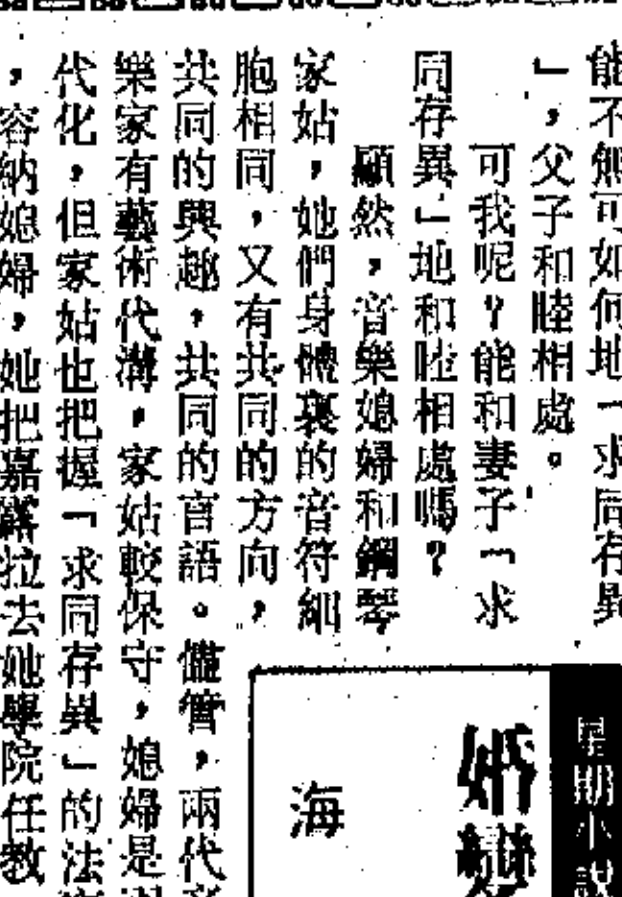 能不無可如何地「求同存異
」，父子和睦相處。
可我呢？能和妻子「求
同存異」地和睦相處嗎？
顯然，音樂媳婦和鋼琴
家姑，她們身體裏的音符細
胞相同，又有共同的方向，
共同的興趣，共同的言語。儘管，兩代音
樂家有藝術代溝，家姑較保守，媳婦是現
代化，但家姑也把握「求同存異」的法
，容納媳婦，她把嘉露拉去她學院任教
星期小說
婚變
海